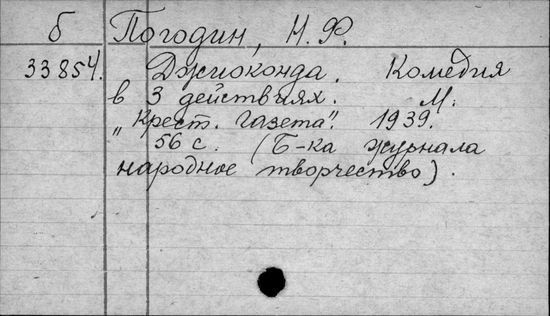 б Погодин, Н. Ф.
33854. Джиоконда. Комедия
в 3 действиях. М.
„Крест. газета". 1939.
56 с. (Б-ка журнала
народное творчество).